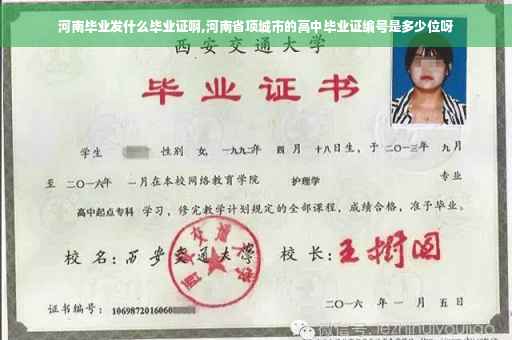 河南毕业发什么毕业证啊,河南省项城市的高中毕业证编号是多少位呀
西安交通大学
毕业证书
学生 性别 女, 一九九二年 四月 十八日生, 于 二〇一三年 九月
至 二〇一六年 一月在本校网络教育学院 护理学 专业
高中起点专科 学习, 修完教学计划规定的全部课程, 成绩合格, 准予毕业。
校名: 西安交通大学 校长: 王树国
西安交通大学
证书编号: 1069872016060
二〇一六年 一月 五日
微信号: jiezhinuiyoujiao